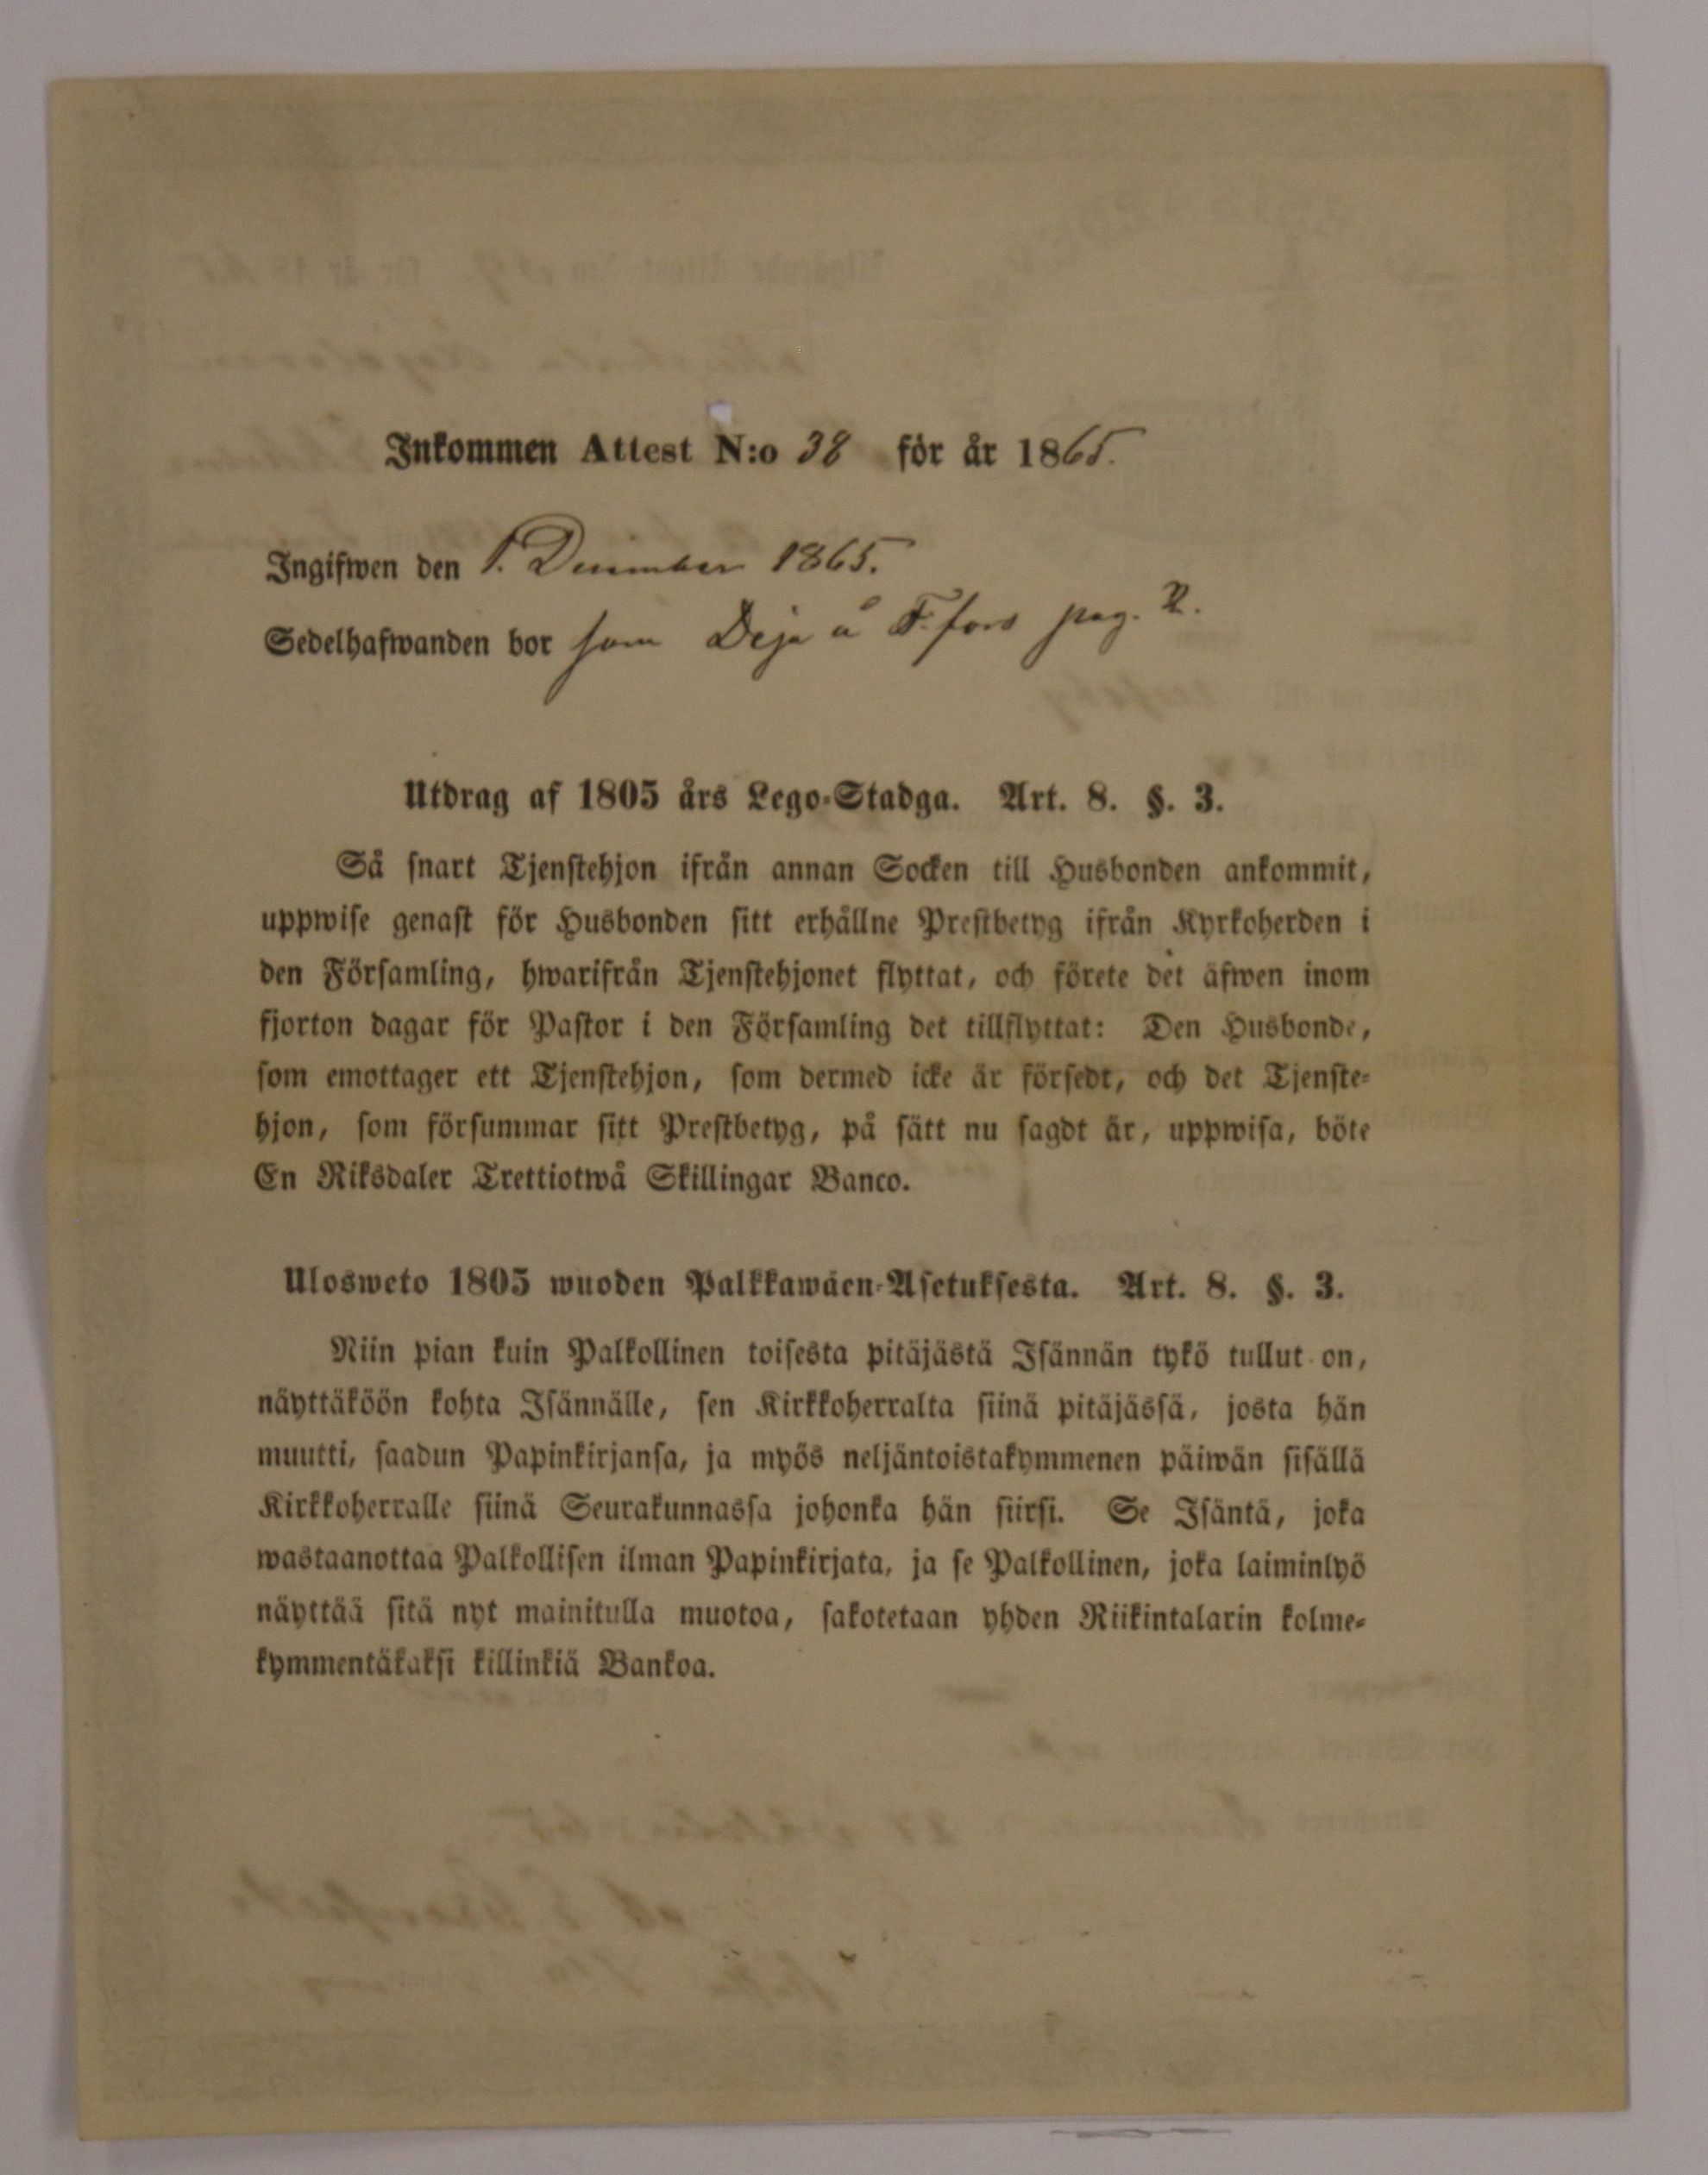 Inkommen Attest N:o 38 för år 1865.
Ingifwen den 1. December 1865.
Sedelhafwanden bor som Deja å F.fors pag. 2.
Utdrag af 1805 års Lego-Stadga. Art. 8. §. 3.
Så snart Tjenstehjon ifrån annan Socken till Husbonden ankommit,
uppwise genast för Husbonden sitt erhållne Prestbetyg ifrån Kyrkoherden i
den Församling, hwarifrån Tjenstehjonet flyttat, och förete det äfwen inom
fjorton dagar för Pastor i den Församling det tillflyttat: Den Husbonde,
som emottager ett Tjenstehjon, som dermed icke är försedt, och det Tjenste-
hjon, som försummar sitt Prestbetyg, på sätt nu sagdt är, uppwisa, böte
En Riksdaler Trettiotwå Skillingar Banco.
Ulosweto 1805 wuoden Palkkawäen-Asetuksesta. Art. 8. §. 3.
Niin pian kuin Palkollinen toisesta pitäjästä Isännän tykö tullut on,
näyttäköön kohta Isännälle, sen Kirkkoherralta siinä pitäjässä, josta hän
muutti, saadun Papinkirjansa, ja myös neljäntoistakymmenen päiwän sisällä
Kirkkoherralle siinä Seurakunnassa johonka hän siirsi. Se Isäntä, joka
wastaanottaa Palkollisen ilman Papinkirjata, ja se Palkollinen, joka laiminlyö
näyttää sitä nyt mainitulla muotoa, sakotetaan yhden Riikintalarin kolme-
kymmentäkaksi killinkiä Bankoa.